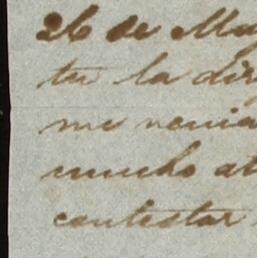 26 de May
tu la dir
me venia
mucho at
contestar